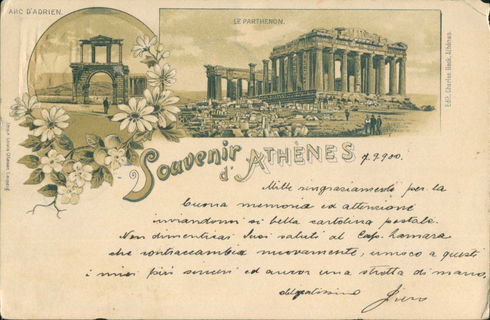 ARC D'ADRIEN.
LE PARTHENON.
Edit. Charles Beck, Athènes.
Souvenir
d'ATHÈNES
9.900.
Mille ringraziamenti per la
buona memoria ed attenzione
inviandomi si bella cartolina postale.
Non dimenticai Suoi saluti al Cap.
che contraccambia nuovamente, unisco a questi
i miei più sinceri ed ancor una stretta di mano.